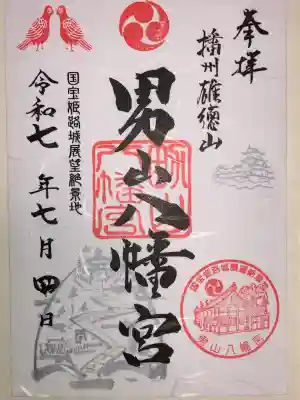 奉拝
播州雄徳山
男山八幡宮
国宝姫路城展望絶景地
令和七年七月四日
男山八幡宮